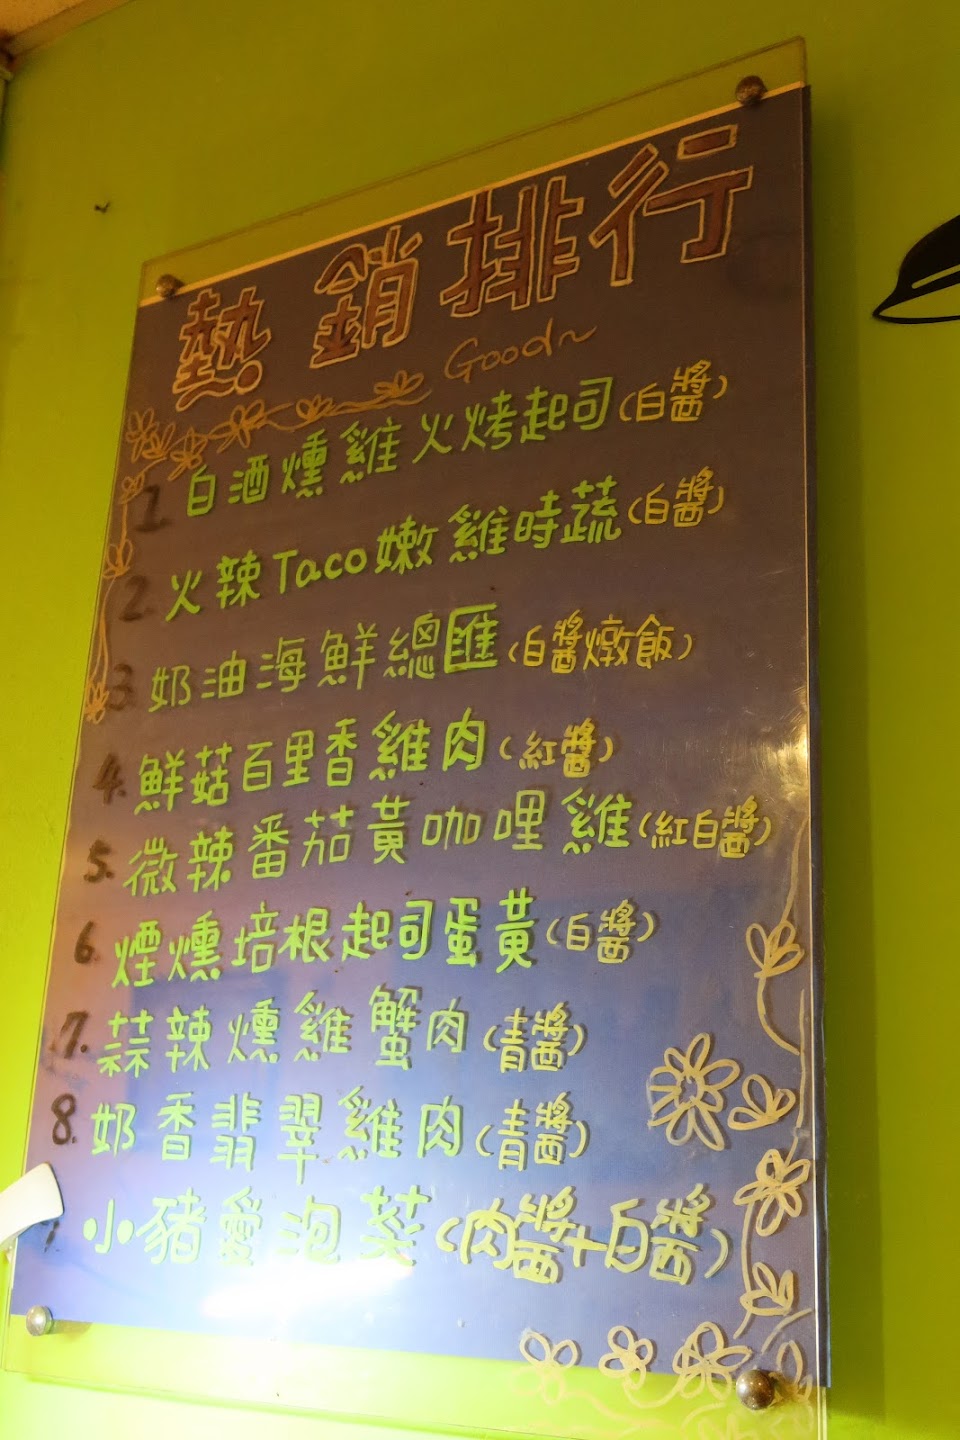 熱銷排行
Good~
1. 白酒燻雞火烤起司(白醬)
2. 火辣Taco嫩雞時蔬(白醬)
3. 奶油海鮮總匯(白醬燉飯)
4. 鮮菇百里香雞肉(紅醬)
5. 微辣番茄黃咖哩雞(紅白醬)
6. 煙燻培根起司蛋黃(白醬)
7. 蒜辣燻雞蟹肉(青醬)
8. 奶香翡翠雞肉(青醬)
小豬愛泡菜(肉醬+白醬)